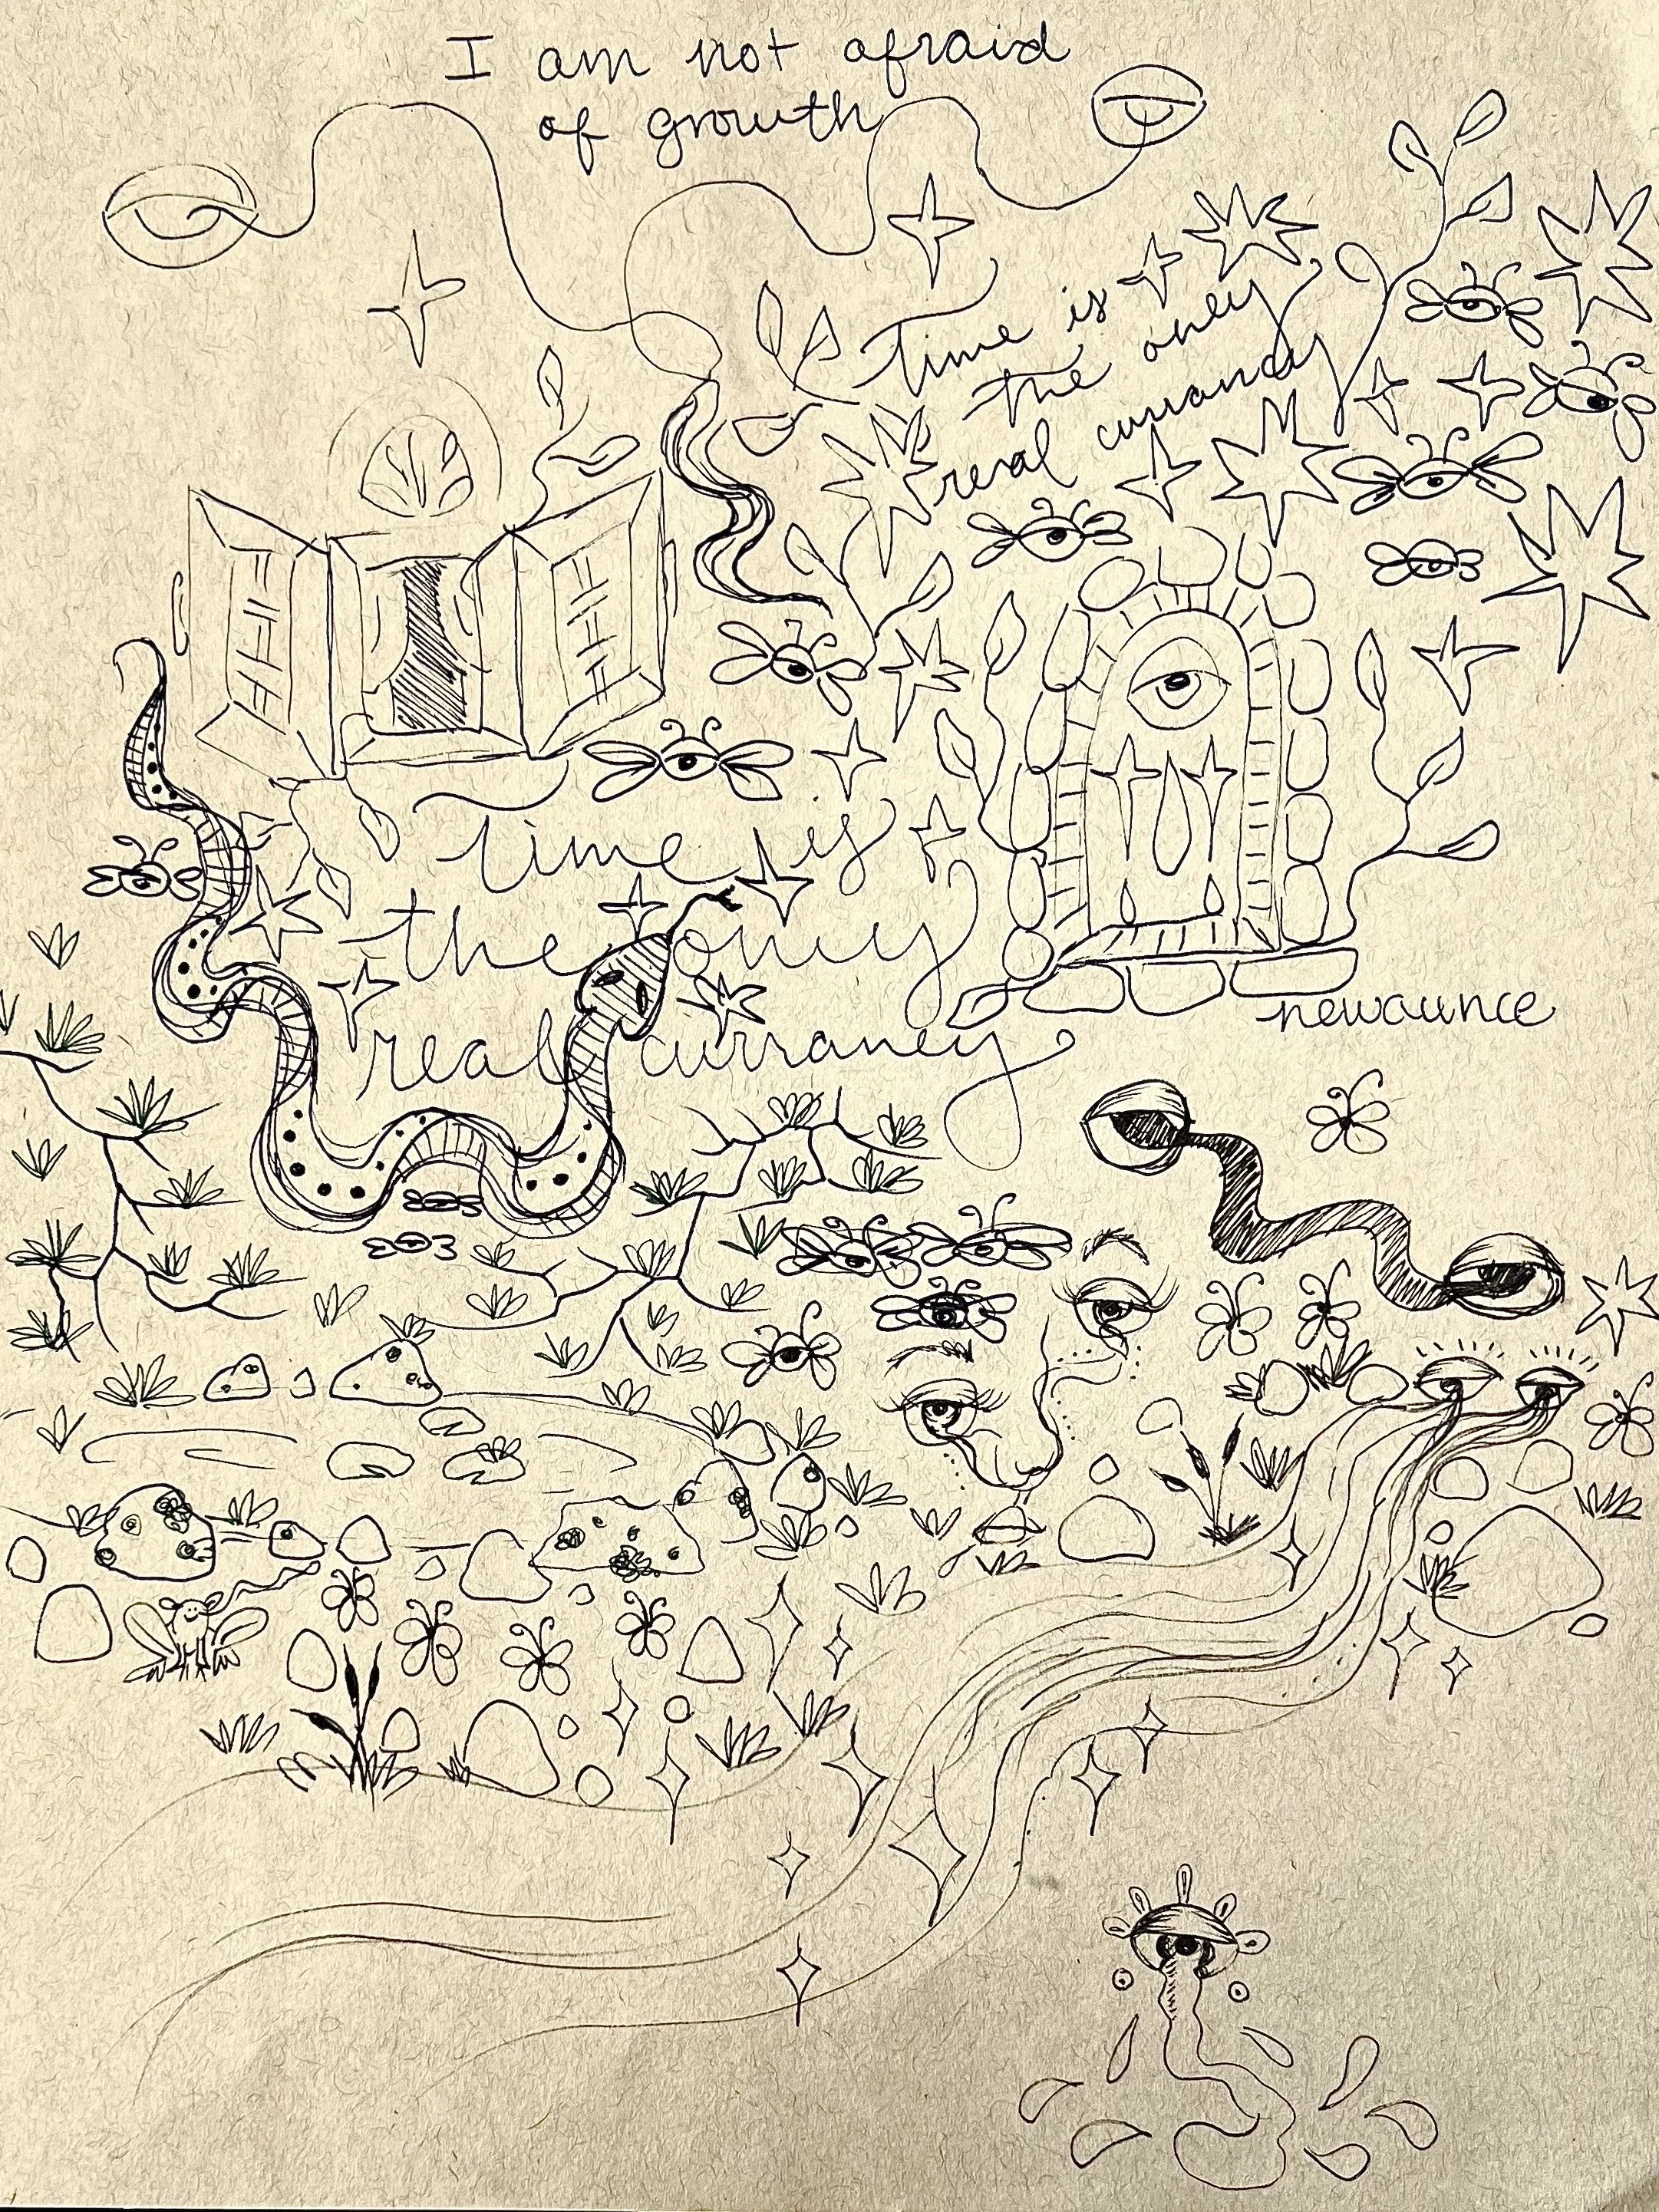 I am not afraid
of growth
time is
the only
real currancy
time is
the only
real currancy
newaunce